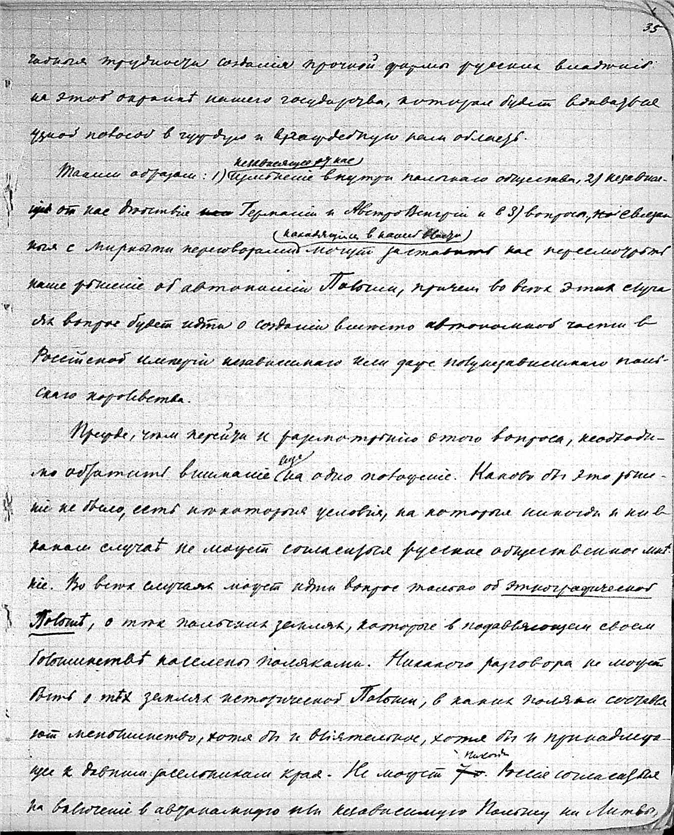 35
чайныя трудности созданія прочной формы русскихъ владѣній
на этой окраинѣ нашего государства, которая будетъ вдаваться
узкой полосой в чуждую и враждебную нам область.
независящее от нас
Таким образом: 1) измѣненіе внутри польскаго общества, 2) независи-
щія от нас дѣйствія Германіи и Австро Венгріи и в 3) вопросы, связан
находящимся в нашей власти
ныя с мирными переговорами могут заставить нас пересмотрѣть
наше рѣшеніе об автономіи Польши, причем во всѣх этих случа
ях вопрос будет идти о созданіи вмѣсто автономной части в
Россійской имперіи независимаго или даже полунезависимаго поль-
скаго королевства.
Прежде, чѣм перейти к разсмотрѣнію этого вопроса, необходи-
еще
мо обратить вниманіе на одно положеніе. Каково бы это рѣше-
ніе не было, есть нѣкоторыя условія, на которыя никогда и ни в
каком случаѣ не может согласиться русское общественное мнѣ
ніе. Во всѣх случаях может идти вопрос только об этнографической
Польшѣ, о тѣх польских землях, которые в подавляющем своем
большинствѣ населены поляками. Никакого разговора не может
быть о тѣх землях исторической Польши, в каких поляки составля
ют меньшинство, хотя бы и вліятельное, хотя бы и принадлежа-
никогда
щее к давним засельникам края. Не может Россія согласиться
на включеніе в автономную или независимую Польшу ни Литвы,